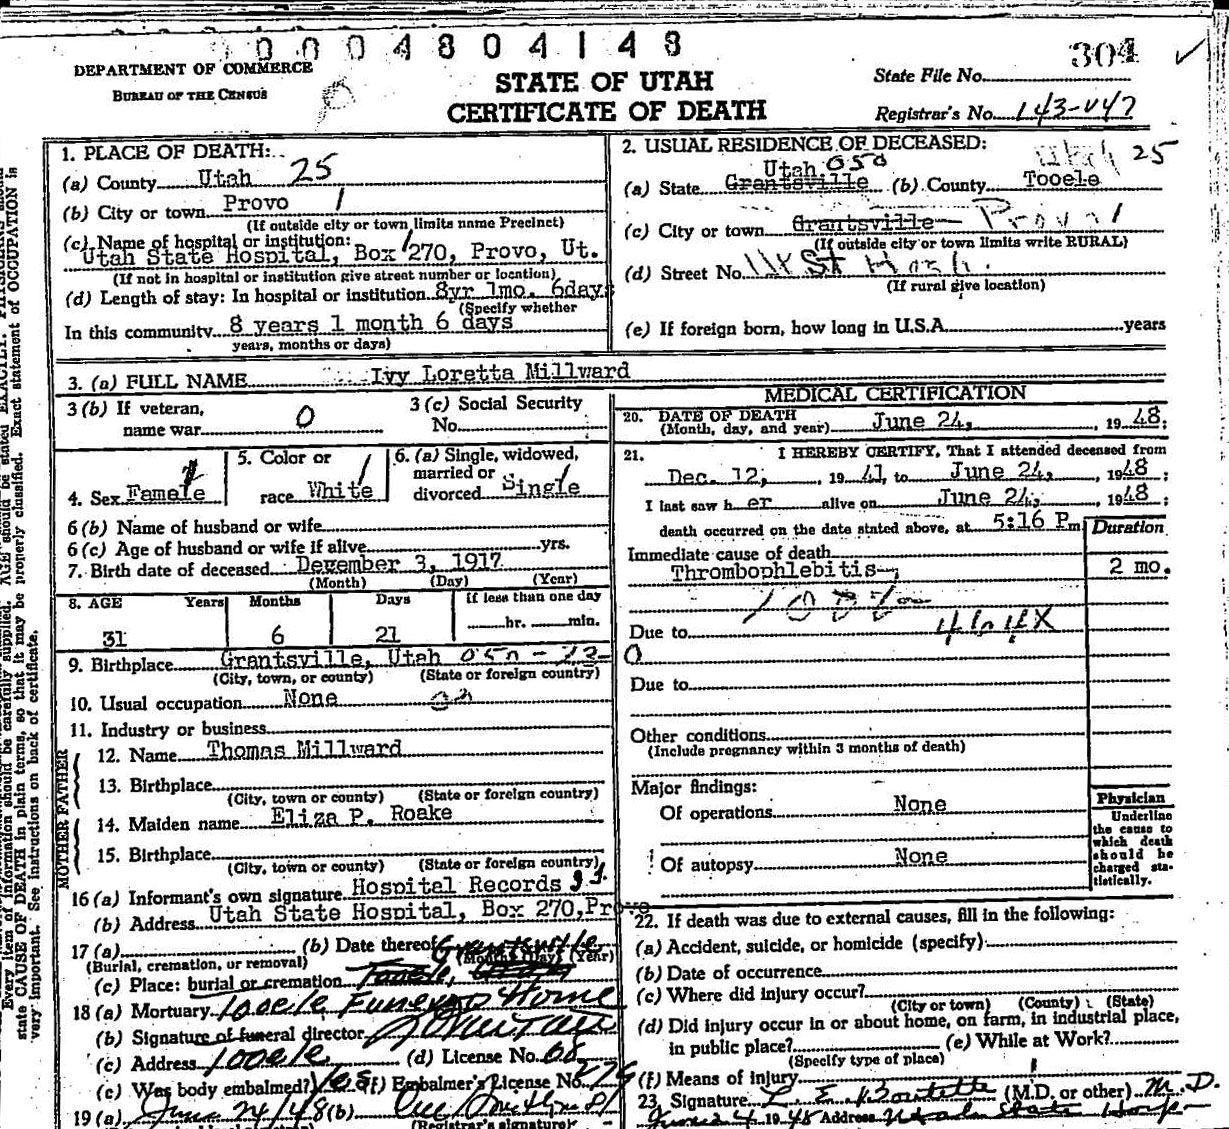 00004804148
304
DEPARTMENT OF COMMERCE
BUREAU OF THE CENSUS
STATE OF UTAH
CERTIFICATE OF DEATH
State File No.
Registrar's No. 143-447
1. PLACE OF DEATH:
(a) County Utah 25
(b) City or town Provo 1
(If outside city or town limits name Precinct)
(c) Name of hospital or institution:
Utah State Hospital, Box 270, Provo, Ut.
(If not in hospital or institution give street number or location)
(d) Length of stay: In hospital or institution 8yr 1mo. 6days
(Specify whether
In this community 8 years 1 month 6 days
years, months or days)
2. USUAL RESIDENCE OF DECEASED:
Utah 050 Utah 25
(a) State Grantsville (b) County Tooele
(c) City or town Grantsville Provo 1
(If outside city or town limits write RURAL)
(d) Street No. Ut St Hosp.
(If rural give location)
(e) If foreign born, how long in U.S.A. years
3. (a) FULL NAME Ivy Loretta Millward
3 (b) If veteran,
name war 0
3 (c) Social Security
No.
4. Sex Famele
5. Color or
race White
6. (a) Single, widowed,
married or
divorced Single
6 (b) Name of husband or wife
6 (c) Age of husband or wife if alive yrs.
7. Birth date of deceased December 3, 1917
(Month) (Day) (Year)
8. AGE Years Months Days If less than one day
31 6 21 hr. min.
9. Birthplace Grantsville, Utah 050
(City, town, or county) (State or foreign country)
10. Usual occupation None
11. Industry or business
FATHER
12. Name Thomas Millward
13. Birthplace
(City, town or county) (State or foreign country)
MOTHER
14. Maiden name Eliza P. Roake
15. Birthplace
(City, town or county) (State or foreign country)
16 (a) Informant's own signature Hospital Records
(b) Address Utah State Hospital, Box 270, Provo
17 (a) (b) Date thereof Grantsville
(Burial, cremation, or removal) (Month) (Day) (Year)
(c) Place: burial or cremation Tooele, Utah
18 (a) Mortuary Tooele Funeral Home
(b) Signature of funeral director
(c) Address Tooele (d) License No. 68
(e) Was body embalmed? Yes (f) Embalmer's License No. 279
19 (a) June 24/48 (b)
(Registrar's signature)
MEDICAL CERTIFICATION
20. DATE OF DEATH
(Month, day, and year) June 24, , 19 48;
21. I HEREBY CERTIFY, That I attended deceased from
Dec. 12, , 19 41, to June 24, , 19 48 ;
I last saw h er alive on June 24, , 19 48 ;
death occurred on the date stated above, at 5:16 Pm
Duration
Immediate cause of death
Thrombophlebitis 2 mo.
Due to
0
Due to
Other conditions
(Include pregnancy within 3 months of death)
Major findings:
Of operations None
Of autopsy None
Physician
Underline
the cause to
which death
should be
charged sta-
tistically.
22. If death was due to external causes, fill in the following:
(a) Accident, suicide, or homicide (specify)
(b) Date of occurrence
(c) Where did injury occur?
(City or town) (County) (State)
(d) Did injury occur in or about home, on farm, in industrial place,
in public place? (e) While at Work?
(Specify type of place)
(f) Means of injury
23. Signature (M.D. or other) M.D.
1948 Address Utah State Hosp
Every item of information should be carefully supplied. AGE should be stated EXACTLY. PHYSICIANS should
state CAUSE OF DEATH in plain terms, so that it may be properly classified. Exact statement of OCCUPATION is
very important. See instructions on back of certificate.